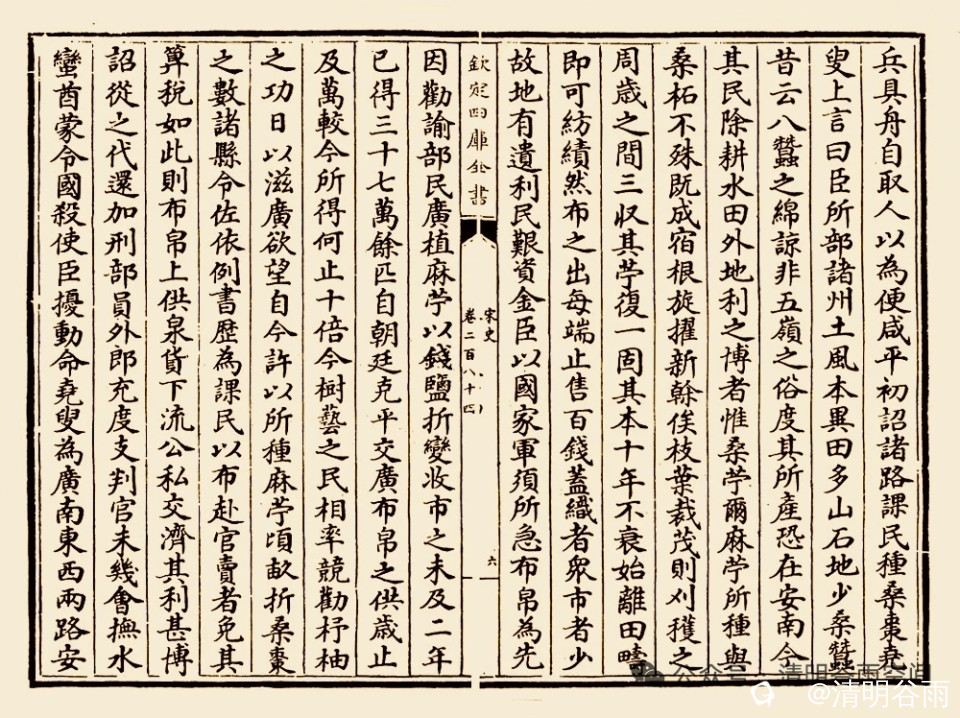 兵具舟自取人以為便咸平初詔諸路課民種桑棗堯
叟上言曰臣所部諸州土風本異田多山石地少桑蠶
昔云八蠶之綿諒非五嶺之俗度其所產恐在安南今
其民除耕水田外地利之博者惟麻苧爾麻苧所種與
桑柘不殊既成宿根旋擢新榦俟枝葉裁茂則刈穫之
周歲之間三收其苧復一固其本十年不衰始離田疇
即可紡績然布之出每端止售百錢蓋織者衆市者少
故地有遺利民艱資金臣以國家軍須所急布帛為先
欽定四庫全書
宋史
卷二百八十四
六
因勸諭部民廣植麻苧以錢鹽折變收市之未及二年
已得三十七萬餘匹自朝廷克平交廣布帛之供歲止
及萬較今所得何止十倍今樹藝之民相率競勸杼柚
之功日以滋廣欲望自今許以所種麻苧頃畝折桑棗
之數諸縣令佐依例書歷為課民以布赴官賣者免其
算稅如此則布帛上供泉貨下流公私交濟其利甚博
詔從之代還加刑部員外郎充度支判官未幾會撫水
蠻酋蒙令國殺使臣擾動命堯叟為廣南東西兩路安
公众号·清明谷雨空间
@清明谷雨